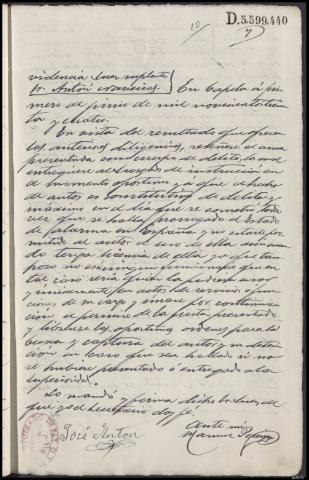 D.5.599.440
10/
7/
videncia Juez suplente
Sr. Antón Naveiras. } En Capela á pri-
mero de junio de mil novecientos trein-
ta y cuatro.
En vista del resultado que ofrecen
las anteriores diligencias, reténgase el arma
presentada como cuerpo de delito, la cual
entréguese al Juzgado de instrucción en
el momento oportuno, ya que el hecho
de autos es constitutivo de delito y
máxime en el día que se cometió toda
vez que se halla prorrogado el Estado
de alarma en España y no estarle per-
mitido al autor el uso de ella aun cuan-
do tenga licencia de ella, ya que tam-
poco es ningún funcionario que en
tal caso sería quien la pudiera usar
y únicamente por actos del servicio, fun-
ciones de su cargo y únase por continua-
ción el permiso de la pista presentado
y líbrense las oportunas ordenes para la
busca y captura del autor y su deten-
ción en caso que sea hallado si no
se hubiere presentado ó entregado a la
superioridad.
Lo mandó y firma dicho Sr. Juez, de
que yo el Secretario doy fé.
José Anton
Ante mi
Manuel